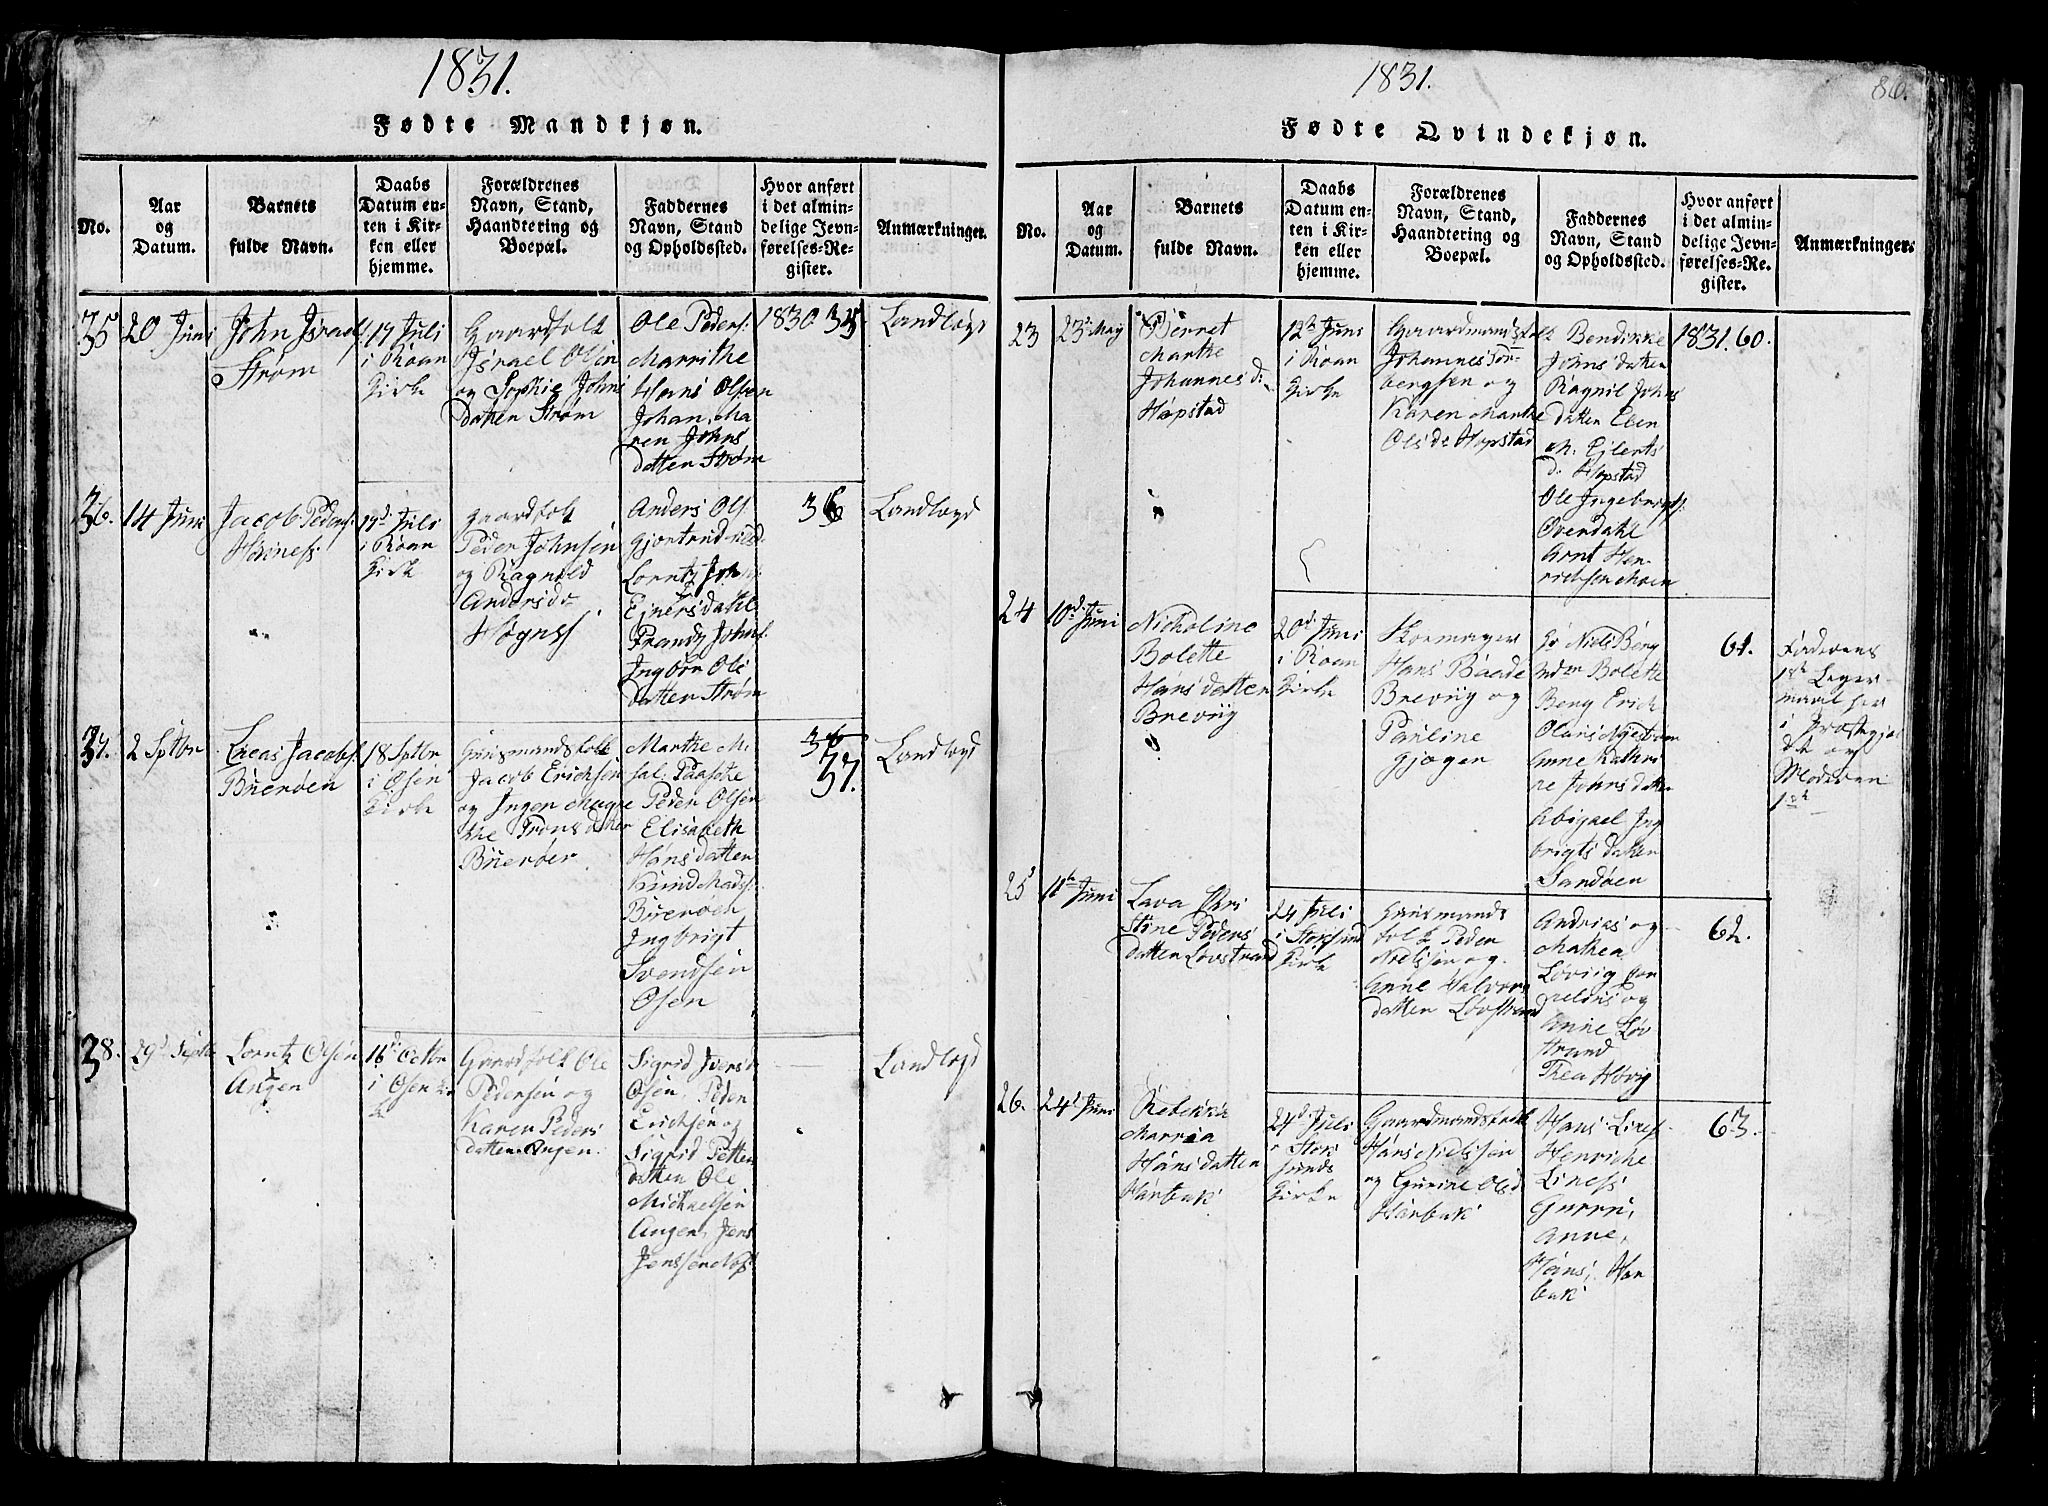 1831.
Fødte Mandkjøn.
No.
Aar
og
Datum.
Barnets
fulde Navn.
Daabs
Datum en-
ten i Kir-
ken eller
hjemme.
Forældrenes
Navn, Stand,
Haandtering og
Boepæl.
Faddernes
Navn, Stand
og Opholdssted.
Hvor anført
i det almin-
delige Jevn-
førelses-Re-
gister.
Anmærkninger.
35
20 Juni
John Israels:
Strøm
17 Juli
i Roan
Kirke
Gaardfolk
Israel Olsen
og Sophie Johns
datten Strøm
Ole Peders:
Marrithe
Hans Olsen
Johan, Ma
ren Johns
datten Strøm
1830 35
Landløgd
36.
14 Juni
Jacob Peders:
17d Juli
i Roan
Kirke
gaardfolk
Peder Johnsen
og Ragnild
Andersd
Anders Ols
Lorntz
Johns:
Ingbor Ols
datten Strøm
36
Landløgd
37.
2 Sptbr
Lucas Jacobs:
Buerøen
18 Sptbr
i Osen
Kirke
Huusmandsfolk
Jacob Erichsen
og Inger Magre
the Tronsdatten
Buerøen
Marthe Mi
Peder Olsen
Elisabeth
Hansdatten
Knud Mads:
Buerøen
Ingbrigt
Svendsen
Osen
36
37.
Landløgd
38.
29d Septb
Lorntz Olsen
Angen
16de Octbr
i Osen K:
Gaardfolk Ole
Pedersen og
Karen Peders
datten Angen.
Sigrid Ivers d
Osen, Peder
Erichsen og
Sigrid Petter
datten Ole
Michaelsen
Angen, Jens
Jenssen
Landløgd
1831.
86.
Fødte Qvindekjøn.
No.
Aar
og
Datum.
Barnets
fulde Navn.
Daabs
Datum en-
ten i Kir-
ken eller
hjemme.
Forældrenes
Navn, Stand,
Haandtering og
Boepæl.
Faddernes
Navn, Stand
og Opholdssted.
Hvor anført
i det almin-
delige Jevn-
førelses-Re-
gister.
Anmærkninger.
23
23d May
Berret
Marthe
Johannes d:
Hopstad
12te Juni
i Roan
Kirke
Gaardmandsfolk
Johannes Tor-
bergsen og
Karen Marthe
Olsd Hopstad
Bendikke
Johnsdatten
Ragnil Johns
datten Elen
M. Ejlerts
d: Hopstad
Ole Ingebrigts:
Overdahl
Arnt Hen-
richsen Moen
1831. 60.
24
10d Juni
Nicholine
Bolette
Hansdatten
Breviig
20d Juni
i Roan
Kirke
Skomager
Hans Baade
Breviig og
Pauline
Gjøgen
Hr Niels Berg
Mdm Bolette
Berg Erich
Anne Kathri
ne Johnsdatten
Abigael Ing
brigtsdatten
Sandøen
61.
Faderens
1st Leger-
maal her
i Præstegjel
det og
Moderens
1st
25
11te Juni
Lava Chri
stine Peders
datten Løvstrand
24 Juli
i Stoksund
Kirke
Huusmands
folk Peder
Nielssen og
Anne Halvors
datten Løvstrand
Andreas og
Mathea
Løviig Cor
nelius og
Anne Løv
strand
Thea Høvig
62.
26.
24d Juni
Rebekka
Marria
Hansdatten
Harbak
24d Juli
i Stok
sunds
Kirke
Gaardmandsfolk
Hans Nielssen
og Gurine Olsd
Harbak
Hans Liness
Henriche
Liness
Gurru,
Anne,
Hans, Har
bak
63.